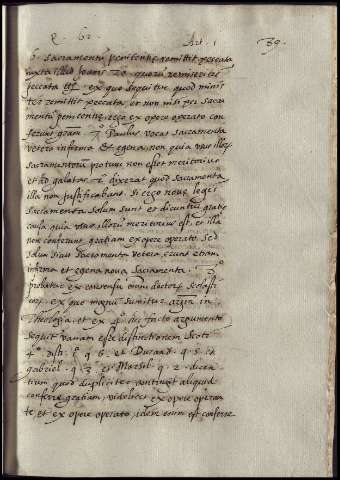 q. 62. Art. 1 39.
6. sacramentum penitentie remittit peccata
iuxta illud Joanis 20. quorum remiseritis
peccata etc. ex quo sequitur quod minis
ter remittit peccata, et non nisi per sacra
mentum penitentie ergo ex opere operato con
ferunt gratiam. 7° Paulus vocat sacramenta
vetera infirma et egena non quia usus illorum
sacramentorum protunc non esset meritorius
et ad galatas 2. dixerat quod sacramenta
illa non justificabant. Si ergo nove legis
sacramenta solum sunt et dicuntur gratie
causa quia usus illorum meritorius est, et illa
non conferunt gratiam ex opere operato sed
solum sicut sacramenta vetera, erunt etiam
infirma et egena nova sacramenta.
probatur ex consensu omnium doctorum scolasti
corum ex quo magnum sumitur argumentum in
Theologia. et ex 4° dicto argumento
sequitur vanam esse distinctionem Scoti
4° dist. 1. q. 6. et Durand. q. 5. et
gabriel. q. 3. et Marsil. q. 2. dicen
tium quod dupliciter contingit aliquid
conferre gratiam, videlicet ex opere operan
te, et ex opere operato, idem enim est conferre